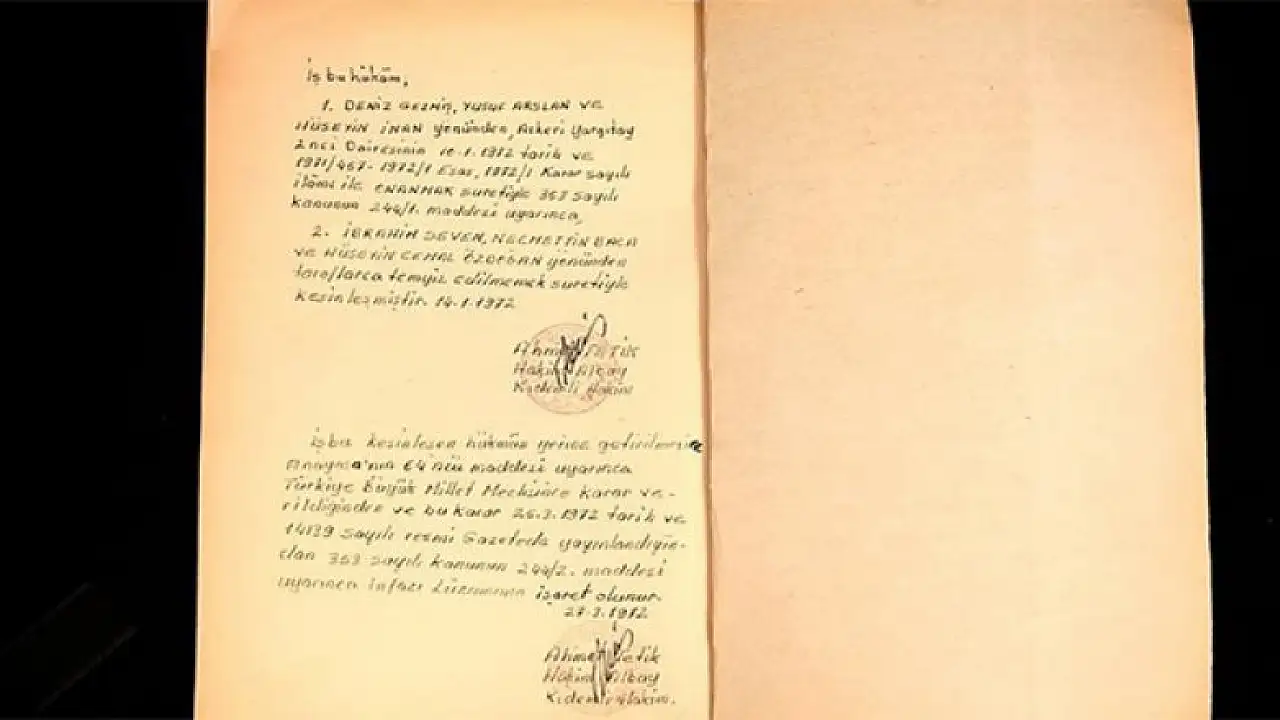 İş bu hüküm,
1. DENİZ GEZMİŞ, YUSUF ARSLAN VE
HÜSEYİN İNAN yönünden, Askeri Yargıtay
2nci Dairesinin 10-1-1972 tarih ve
1971/457-1972/1 Esas, 1972/1 Karar sayılı
ilâmı ile ONANMAK suretiyle 353 sayılı
kanunun 244/1. maddesi uyarınca,
2. İBRAHİM SEVEN, NECMETTİN BACA
ve HÜSEYİN CEMAL ÖZDOĞAN yönünden
taraflarca temyiz edilmemek suretiyle
kesinleşmiştir. 14-1-1972
Ahmet Tetik
Hakim Albay
Kıdemli Hakim
İşbu kesinleşen hükmün yerine getirilmesine
Anayasa'nın 64'ncü maddesi uyarınca
Türkiye Büyük Millet Meclisince karar ve-
rildiğinden ve bu karar 25.3.1972 tarih ve
14139 sayılı resmi Gazetede yayınlandığın-
dan 353 sayılı kanunun 244/2. maddesi
uyarınca infazı lüzumuna işaret olunur.
27.3.1972
Ahmet Tetik
Hâkim Albay
Kıdemli Hakim.